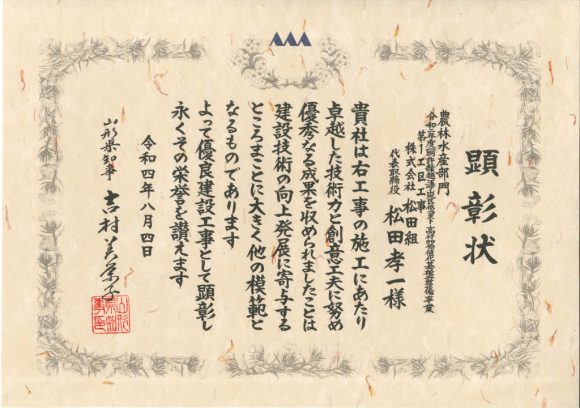 顕彰状
農林水産部門
第1工区工事
株式会社 松田組
代表取締役 松田孝一様
貴社は右工事の施工にあたり
卓越した技術力と創意工夫に努め
優秀なる成果を収められましたことは
建設技術の向上発展に寄与する
ところまことに大きく他の模範と
なるものであります
よって優良建設工事として顕彰し
永くその栄誉を讃えます
令和四年八月四日
山形県知事 吉村美栄子